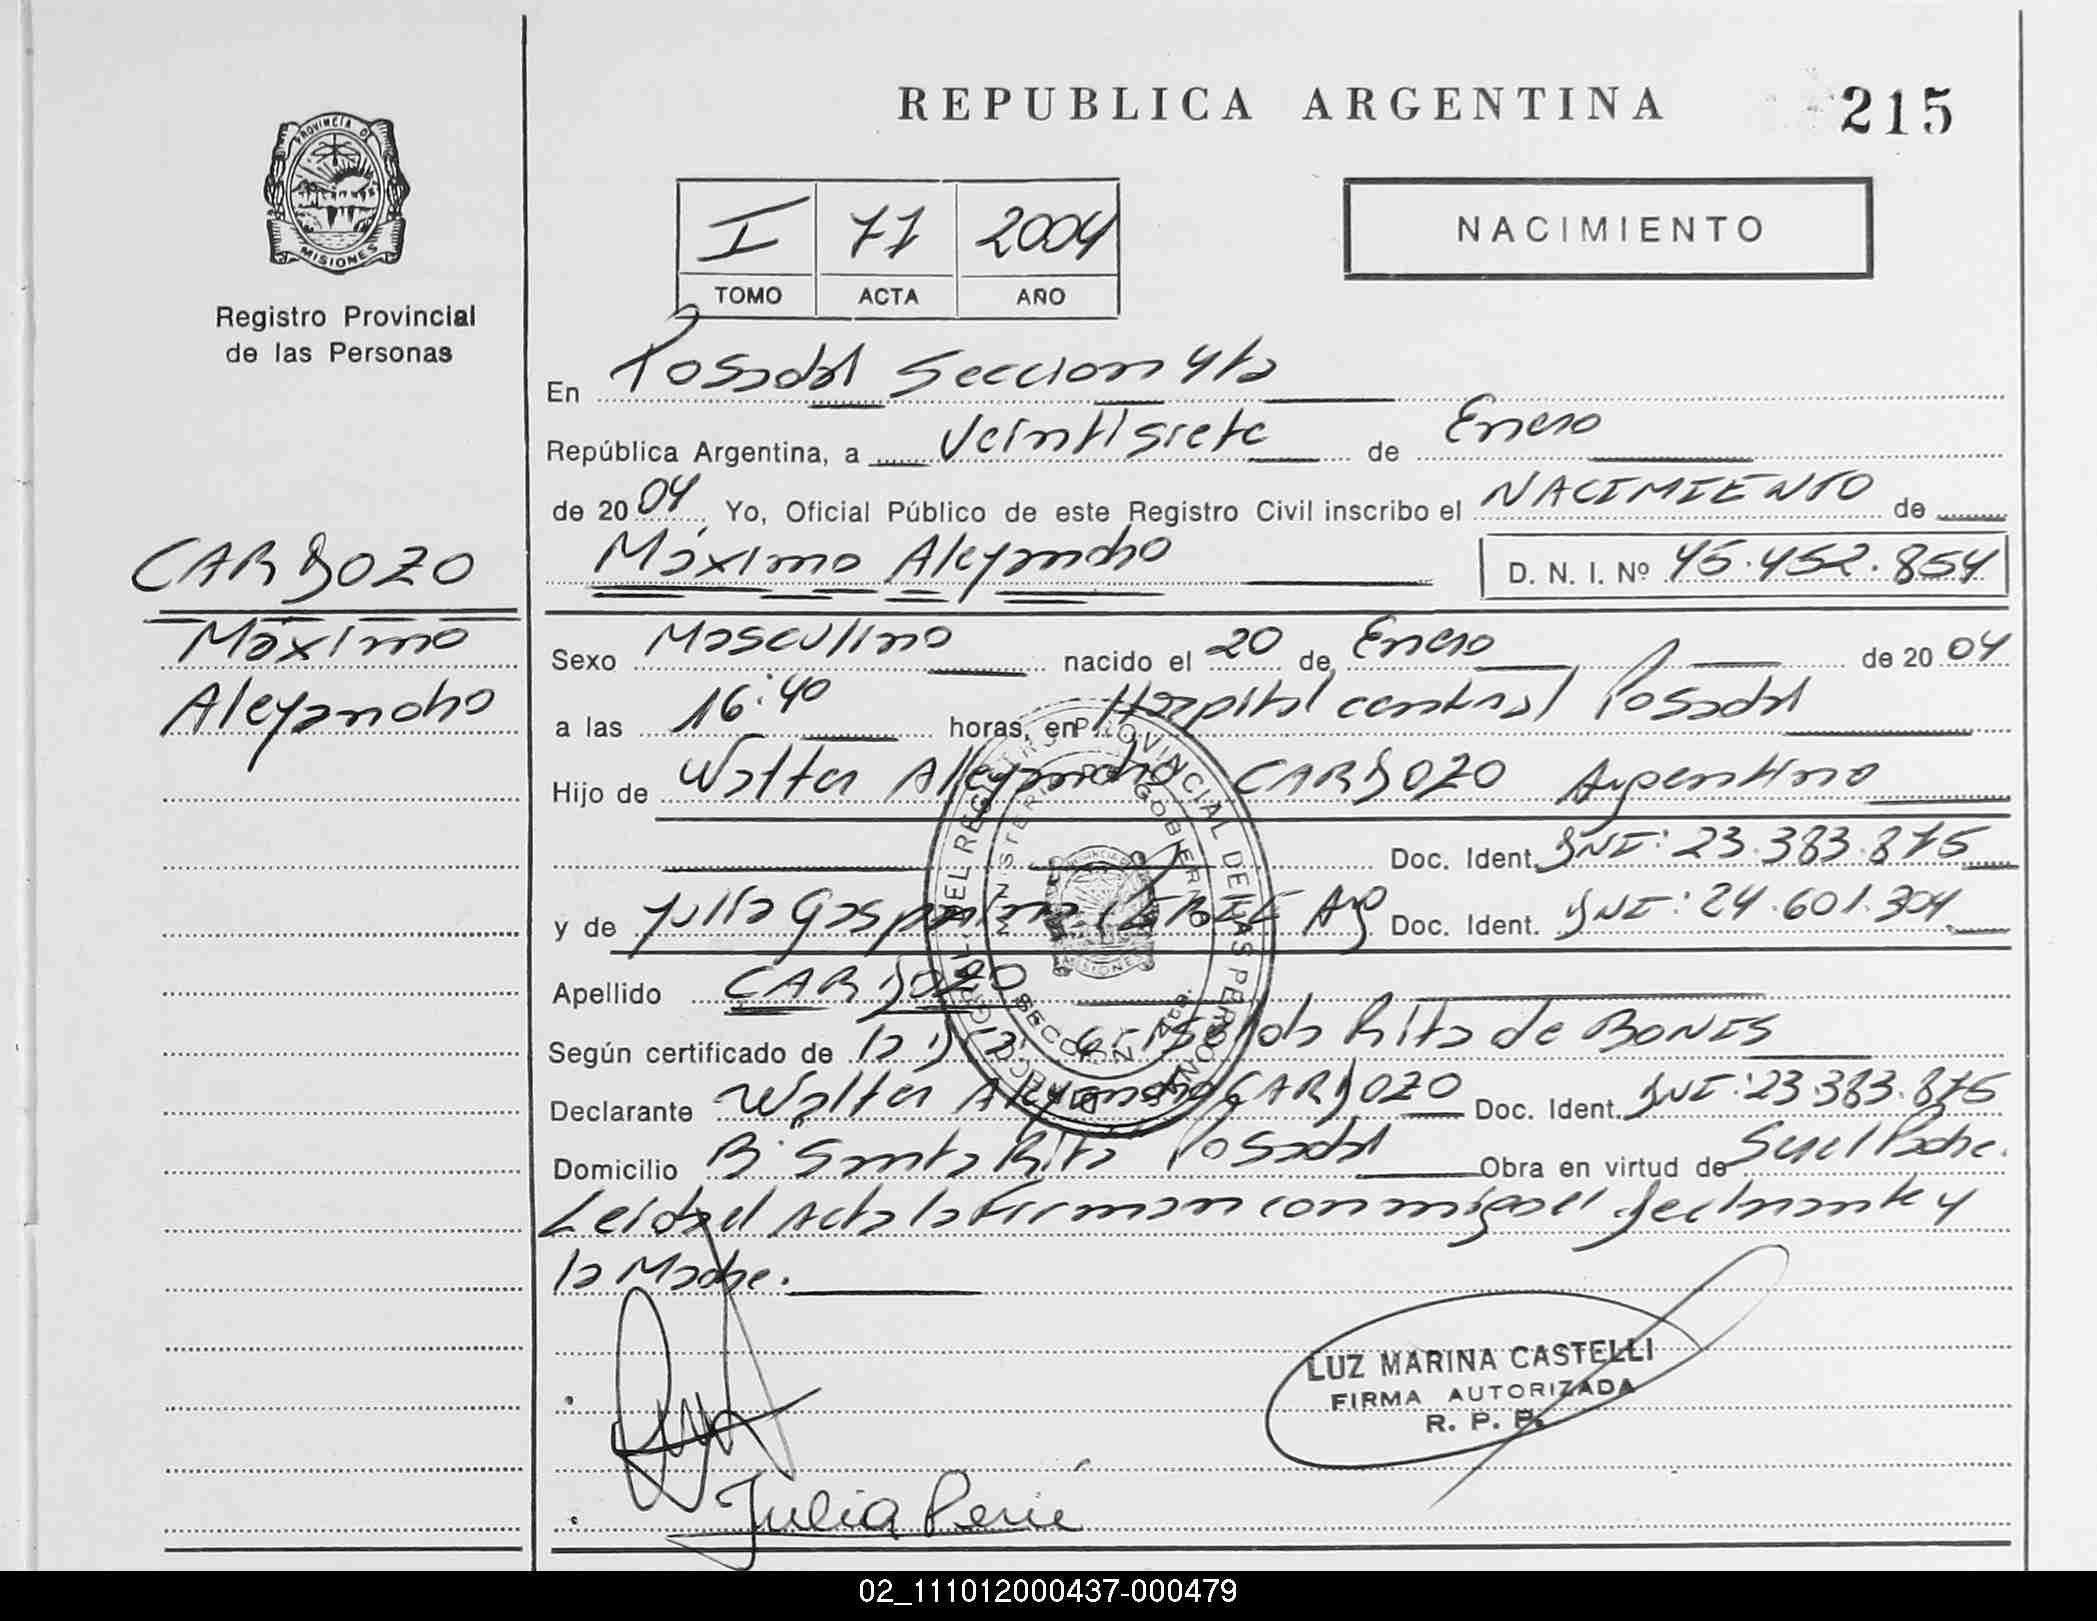 REPUBLICA ARGENTINA
215
PROVINCIA DE
MISIONES
Registro Provincial
de las Personas
I 71 2004
TOMO ACTA AÑO
NACIMIENTO
En Posadas Seccion 4ta
República Argentina, a Veintisiete de Enero
de 2004 Yo, Oficial Público de este Registro Civil inscribo el NACIMIENTO de
Máximo Alejandro D. N. I. Nº 45.452.854
CARDOZO
Máximo
Alejandro
Sexo Masculino nacido el 20 de Enero de 2004
a las 16:40 horas, en Hospital central Posadas
Hijo de Walter Alejandro CARDOZO Argentino
Doc. Ident. DNI: 23.383.875
y de Julia Gasparina Arg Doc. Ident. DNI: 24.601.304
Apellido CARDOZO
Según certificado de la Rita de BONIS
Declarante Walter Alejandro CARDOZO Doc. Ident. DNI: 23.383.875
Domicilio Bº Santa Rita Posadas Obra en virtud de Ser el Padre.
Leida el Acta la Firman conmigo el declarante y
la Madre.
DIRECCION DEL REGISTRO PROVINCIAL DE LAS PERSONAS
MINISTERIO DE GOBIERNO
SECCION 4ta.
MISIONES
LUZ MARINA CASTELLI
FIRMA AUTORIZADA
R. P. P.
Julia Perié
02_111012000437-000479